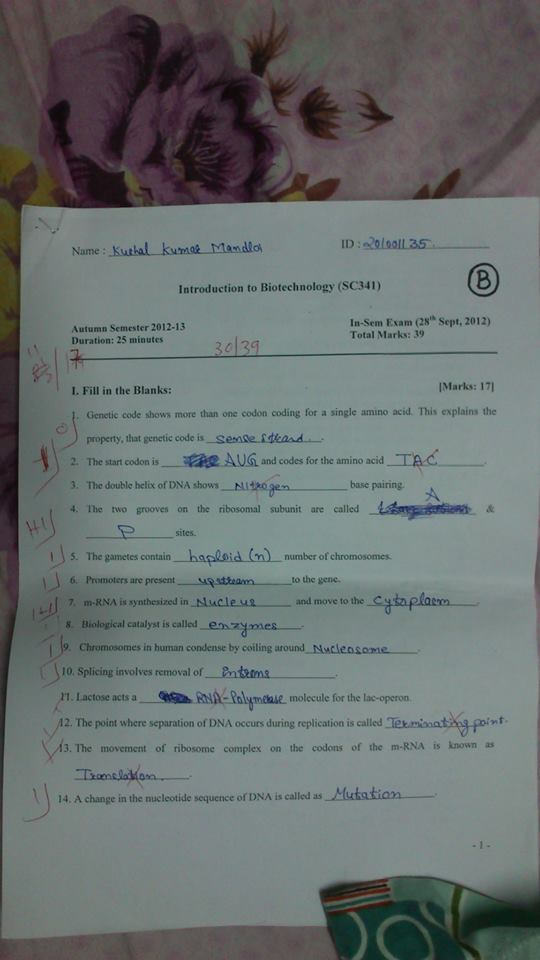 Name : Kushal Kumar Mandloi ID : 201001135
Introduction to Biotechnology (SC341)
B
Autumn Semester 2012-13 In-Sem Exam (28th Sept, 2012)
Duration: 25 minutes Total Marks: 39
30/39
I. Fill in the Blanks: [Marks: 17]
1. Genetic code shows more than one codon coding for a single amino acid. This explains the
property, that genetic code is sense strand.
2. The start codon is AUG and codes for the amino acid TAC.
3. The double helix of DNA shows Nitrogen base pairing.
4. The two grooves on the ribosomal subunit are called A &
P sites.
5. The gametes contain haploid (n) number of chromosomes.
6. Promoters are present upstream to the gene.
7. m-RNA is synthesized in Nucleus and move to the Cytoplasm.
8. Biological catalyst is called enzymes.
9. Chromosomes in human condense by coiling around Nucleosome.
10. Splicing involves removal of Introns.
11. Lactose acts a RNA-Polymerase molecule for the lac-operon.
12. The point where separation of DNA occurs during replication is called Terminating point.
13. The movement of ribosome complex on the codons of the m-RNA is known as
Translation.
14. A change in the nucleotide sequence of DNA is called as Mutation.
- 1 -